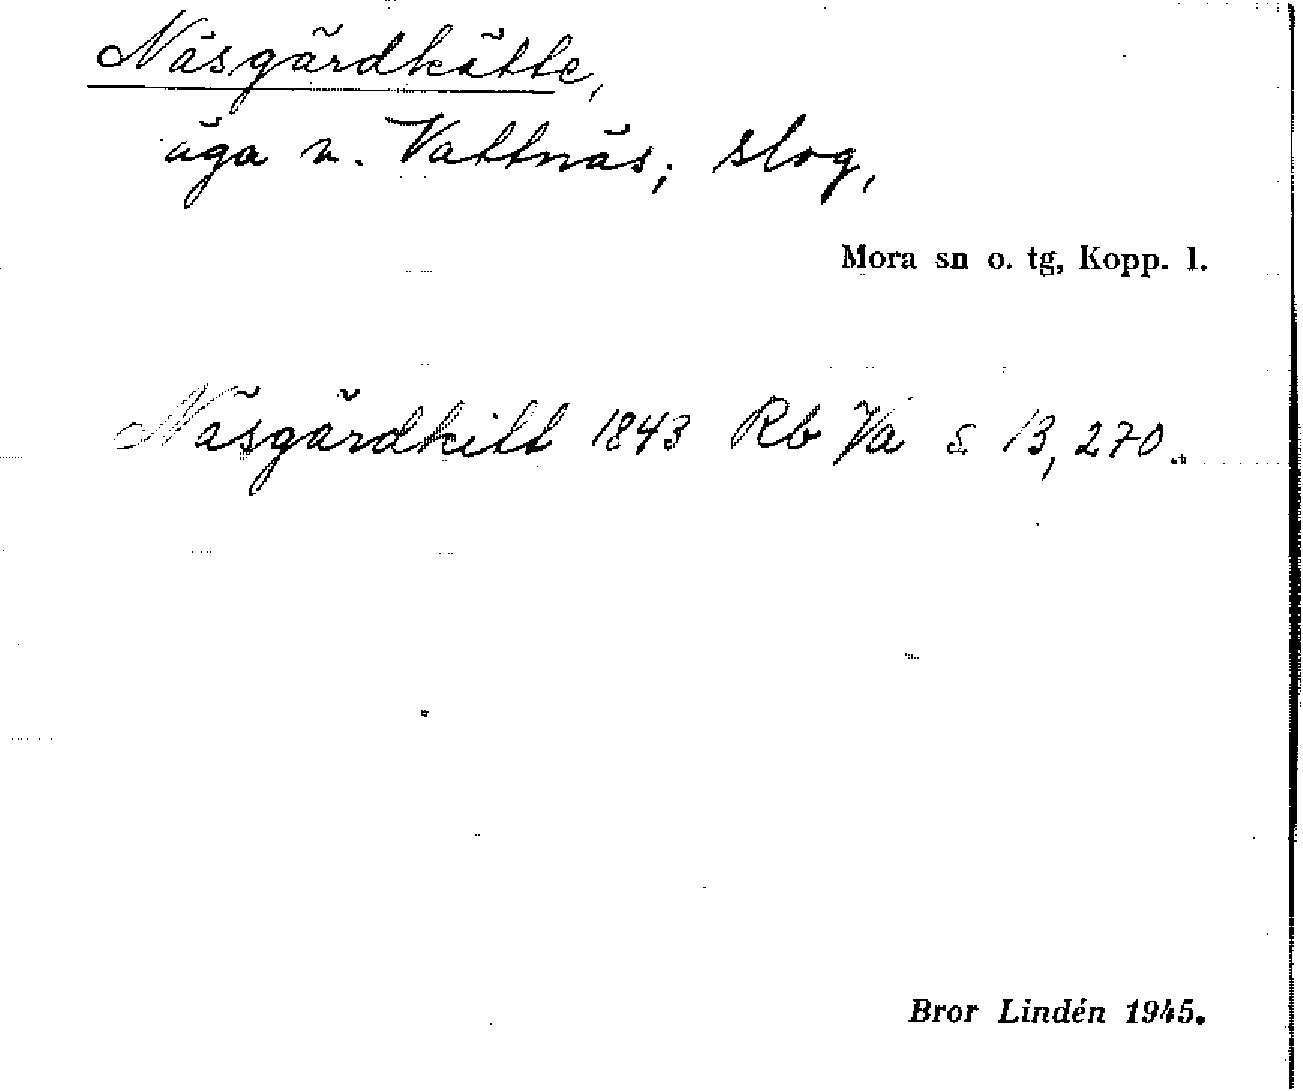 Näsgärdkätte,
äga v. Vattnäs; slog,
Mora sn o. tg, Kopp. l.
Näsgärdkitt 1843 Rb Va s 13, 270.
Bror Lindén 1945.